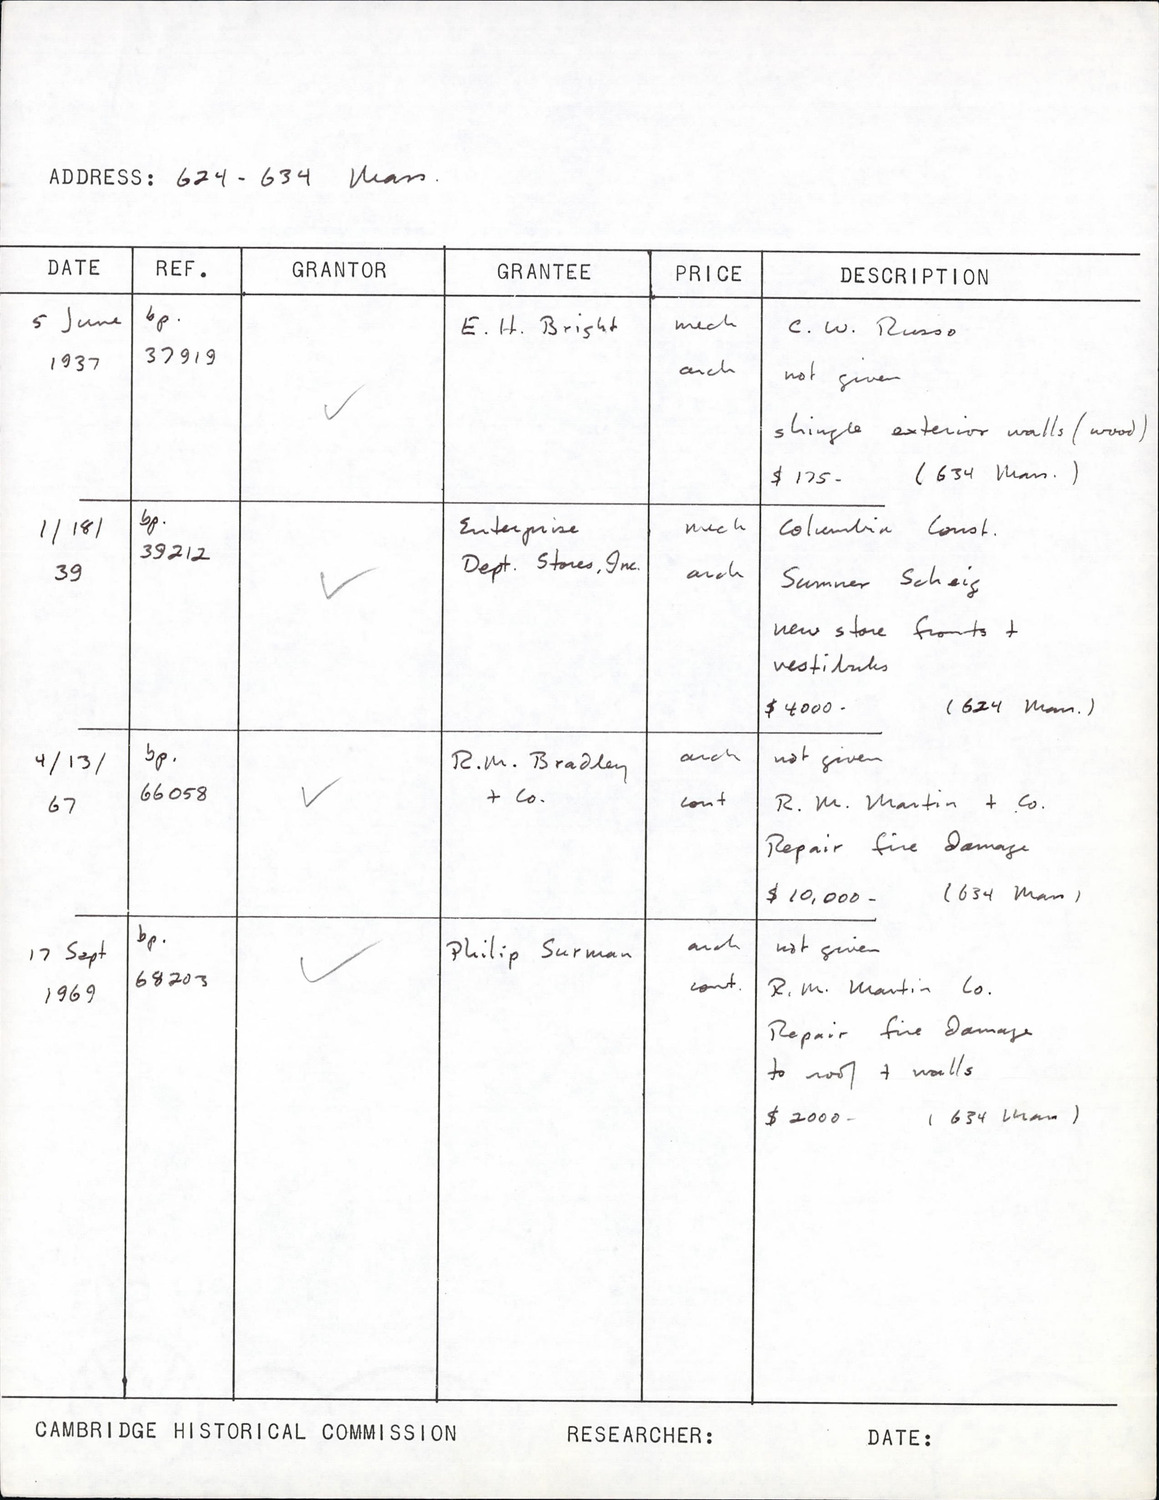 ADDRESS: 624-634 Mass.
DATE REF. GRANTOR GRANTEE PRICE DESCRIPTION
5 June bp. E. H. Bright mech C. W. Russo
1937 37919 arch not given
✓
shingle exterior walls (wood)
$ 175- (634 Mass.)
1/18/ bp. Enterprise mech Columbia Const.
39 39212 Dept. Stores, Inc. arch Sumner Scheig
✓
new store fronts +
vestibules
$4000- (624 Mass.)
4/13/ bp. R.M. Bradley arch not given
67 66058 ✓ + Co. cont R. M. Martin + Co.
Repair fire damage
$ 10,000- (634 Mass)
17 Sept bp. Philip Surman arch not given
1969 68203 ✓ cont. R.M. Martin Co.
Repair fire damage
to roof + walls
$ 2000- (634 Mass)
CAMBRIDGE HISTORICAL COMMISSION RESEARCHER: DATE: